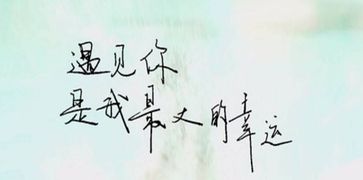 遇见你
是我最大的幸运